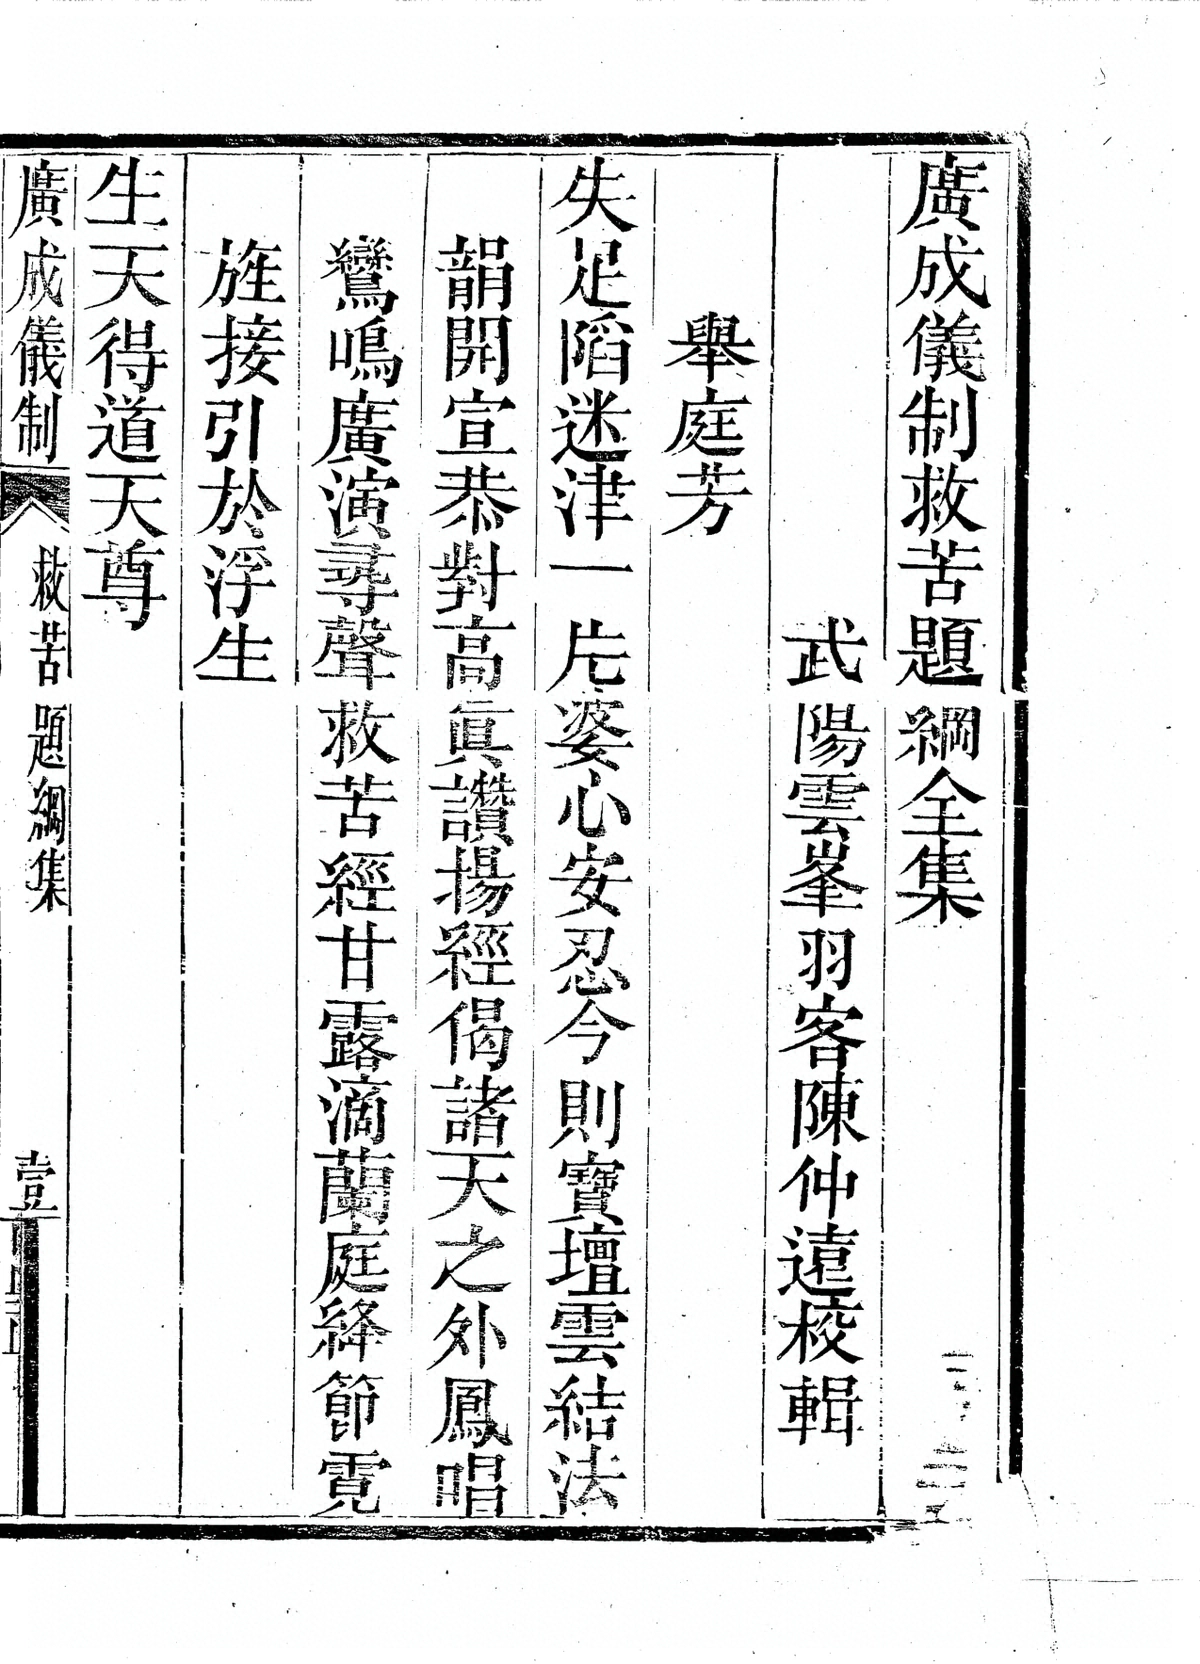 廣成儀制救苦題綱全集
武陽雲峯羽客陳仲遠校輯
舉庭芳
失足蹈迷津一片婆心安忍今則寶壇雲結法
韻開宣恭對高眞讚揚經偈諸天之外鳳唱
鸞鳴廣演尋聲救苦經甘露滴蘭庭絳節霓
旌接引於浮生
生天得道天尊
廣成儀制
救苦題綱集
壹